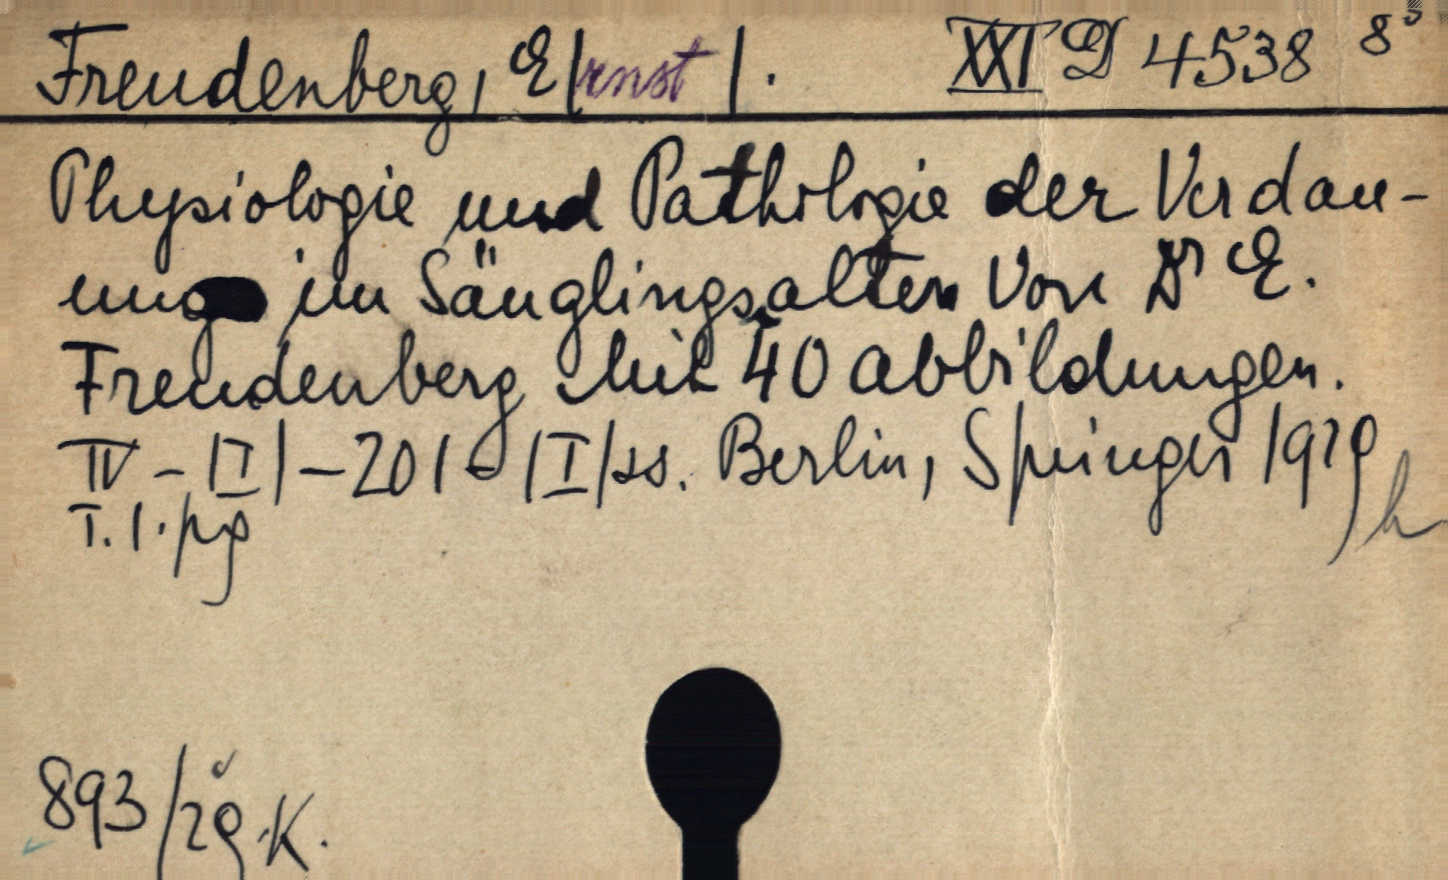 Freudenberg, E|rnst|. XXI D 4538 8°
Physiologie und Pathologie der Verdau-
ung im Säuglingsalter. Von Dr E.
Freudenberg Mit 40 abbildungen.
IV - |I| - 201 - |I| ss. Berlin, Springer 1929
T. 1. pg
893/29 K.